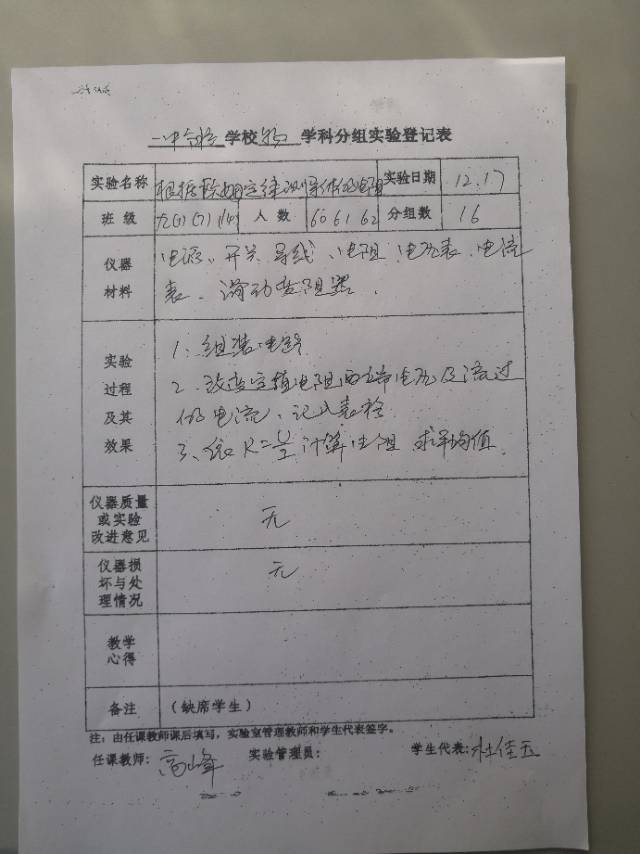 学校 学科分组实验登记表
实验名称 根据欧姆定律测导体的电阻 实验日期 12.17
班 级 人 数 60 61 62 分组数 16
仪器材料 电源、开关、导线、电阻、电压表、电流
表、滑动变阻器.
实验过程及其效果
1、组装电路
2、改变定值电阻两端电压及流过
的电流、记入表格
3、依R=U/I计算电阻 求平均值.
仪器质量或实验改进意见 无
仪器损坏与处理情况 无
教学心得
备注 (缺席学生)
注:由任课教师课后填写,实验室管理教师和学生代表签字。
任课教师:高峰 实验管理员: 学生代表:杜佳玉